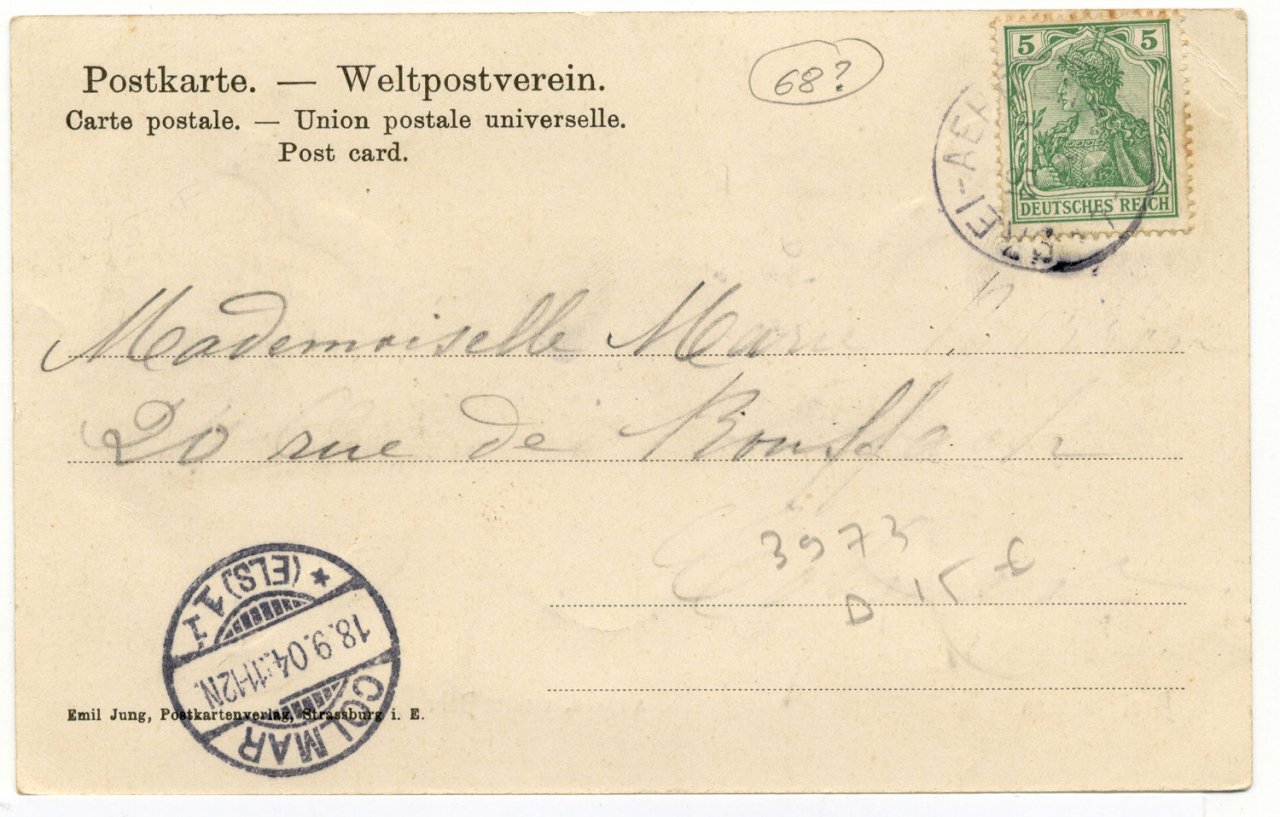 Postkarte. — Weltpostverein.
Carte postale. — Union postale universelle.
Post card.
68?
5 5
DEUTSCHES REICH
Mademoiselle Marie
20 rue de Rouffach
3973
COLMAR
* (ELS) 1 I
18.9.04.11-12N.
Emil Jung, Postkartenverlag, Strassburg i. E.